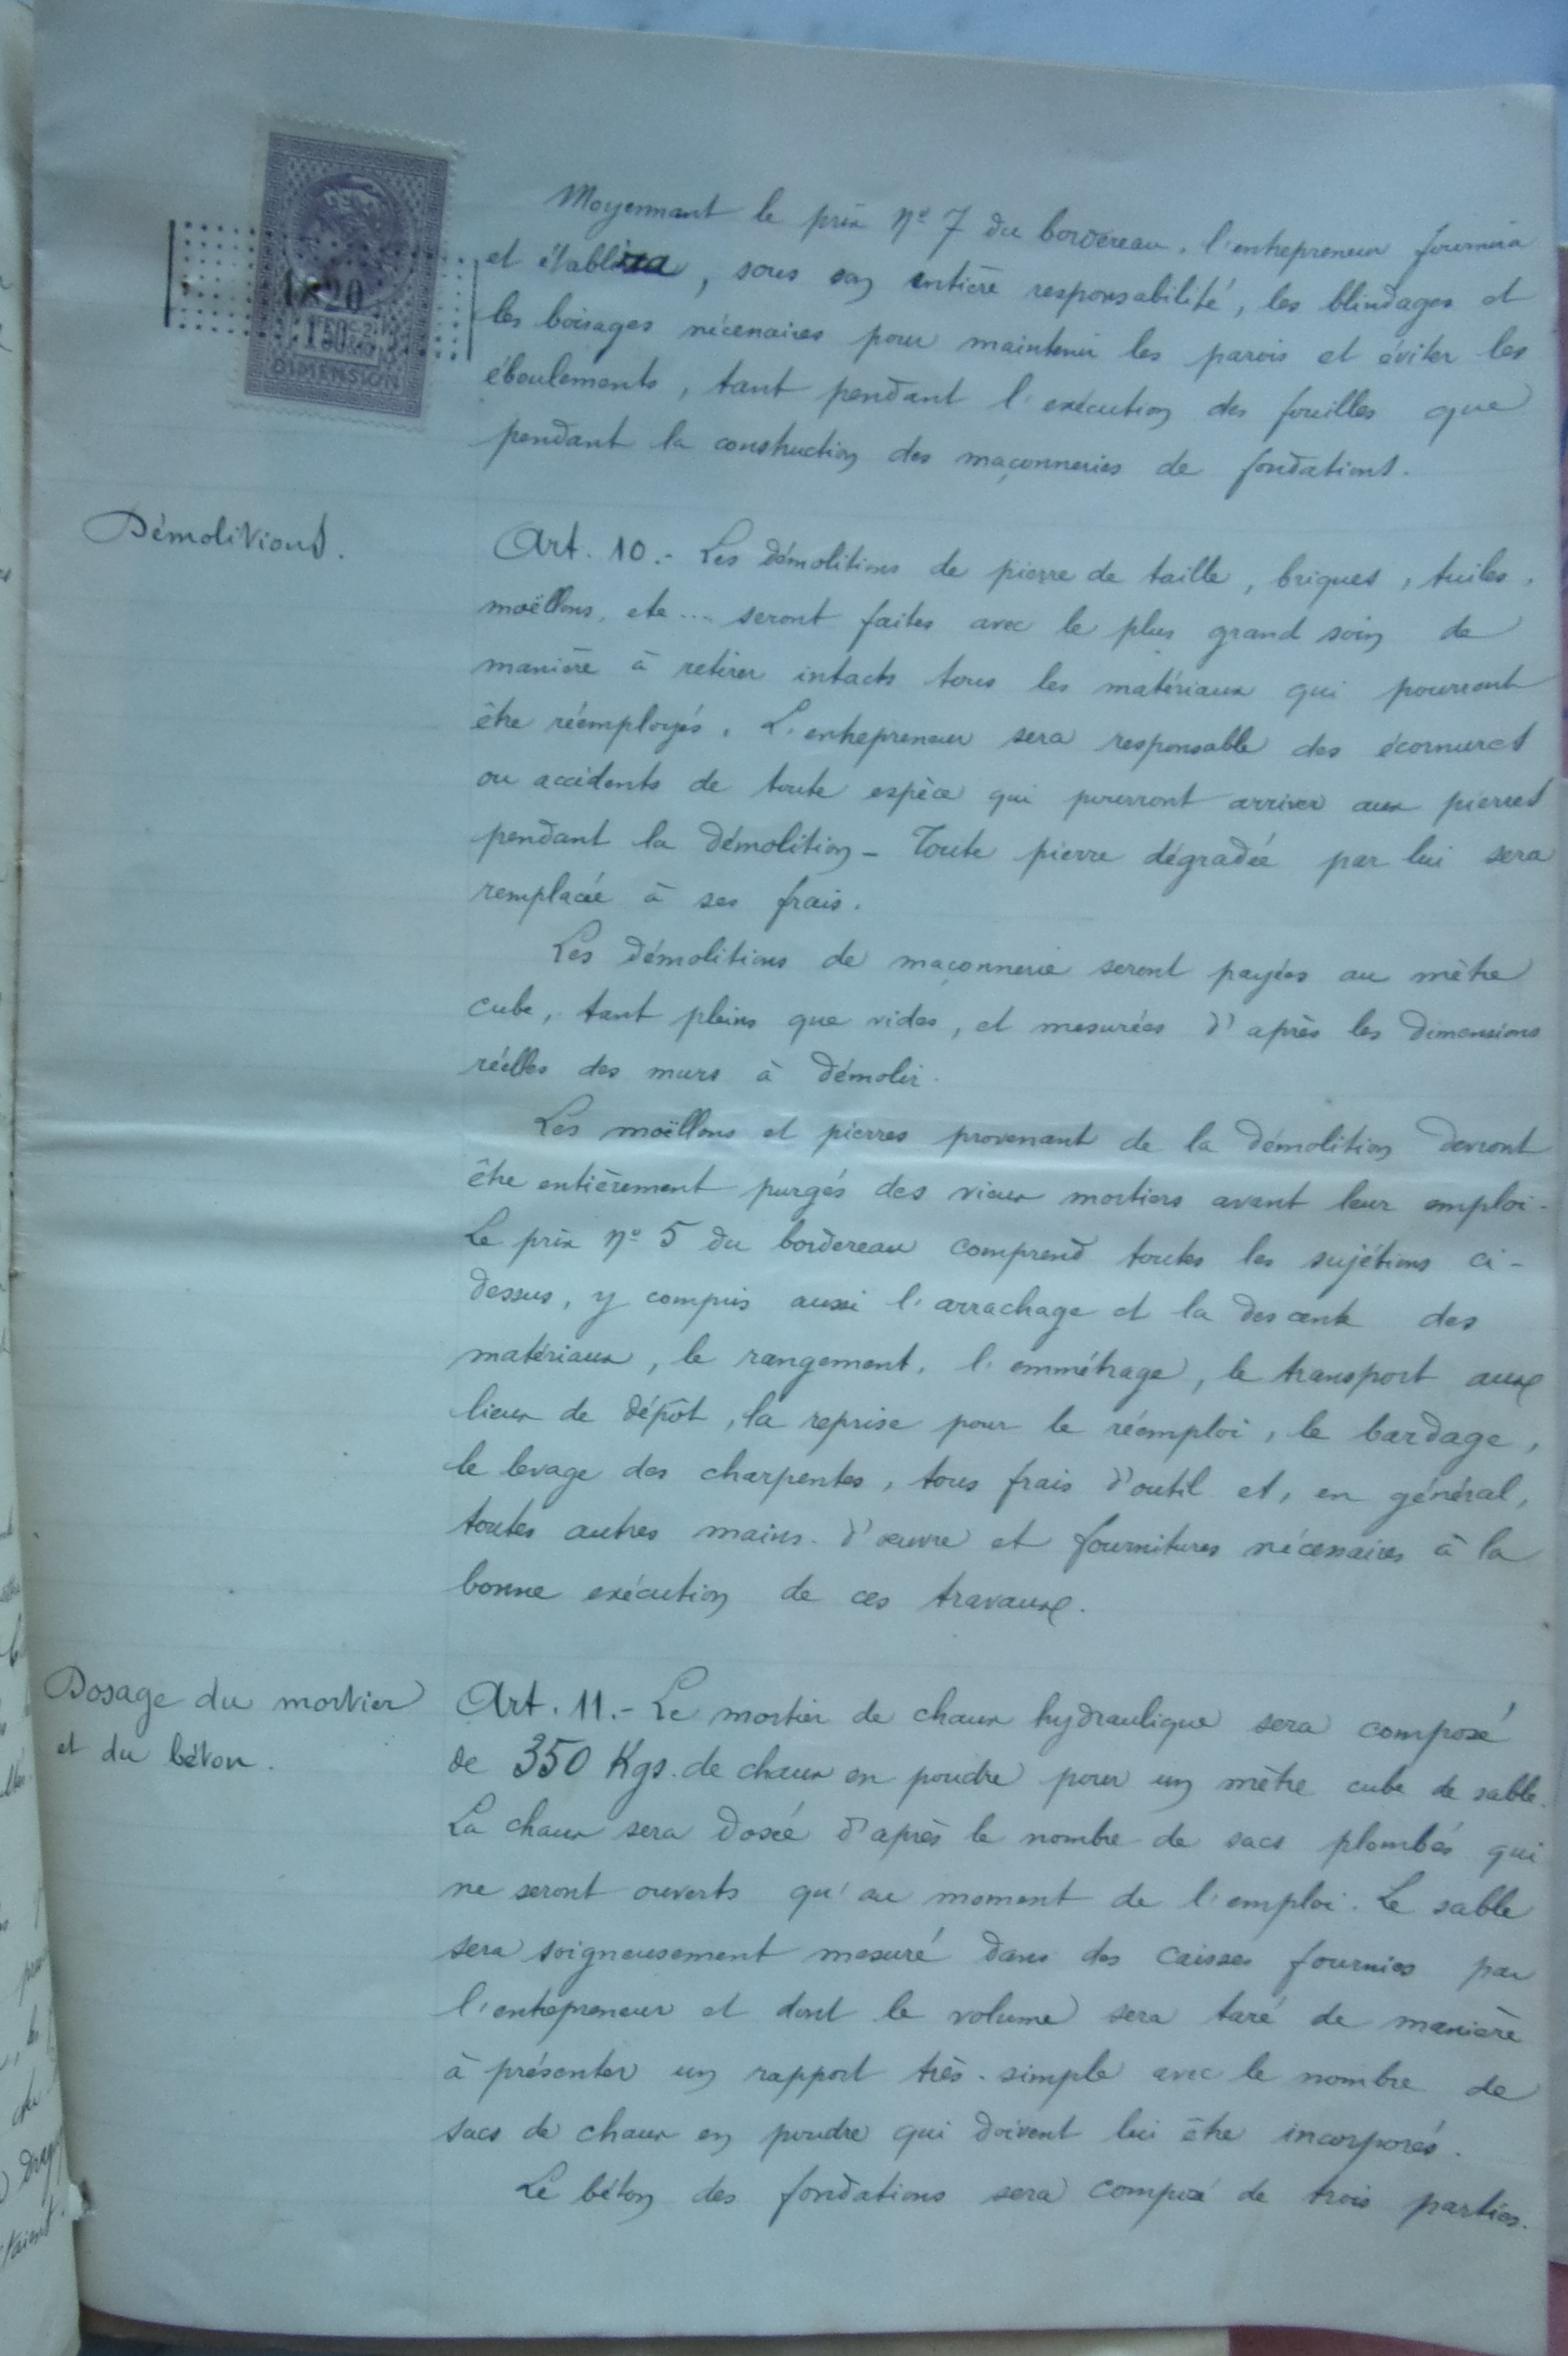 1820
DIMENSION
Moyennant le prix Nº 7 du bordereau, l'entrepreneur fournira
et établira, sous son entière responsabilité, les blindages et
les boisages nécessaires pour maintenir les parois et éviter les
éboulements, tant pendant l'exécution des fouilles que
pendant la construction des maçonneries de fondations.
Démolitions.
Art. 10.- Les démolitions de pierre de taille, briques, tuiles,
moëllons, etc... seront faites avec le plus grand soin de
manière à retirer intacts tous les matériaux qui pourront
être réemployés. L'entrepreneur sera responsable des écornures
ou accidents de toute espèce qui pourront arriver aux pierres
pendant la démolition - Toute pierre dégradée par lui sera
remplacée à ses frais.
Les démolitions de maçonnerie seront payées au mètre
cube, tant pleins que vides, et mesurées d'après les dimensions
réelles des murs à démolir.
Les moëllons et pierres provenant de la démolition devront
être entièrement purgés des vieux mortiers avant leur emploi.
Le prix Nº 5 du bordereau comprend toutes les sujétions ci-
dessus, y compris aussi l'arrachage et la descente des
matériaux, le rangement, l'emmétrage, le transport aux
lieux de dépôt, la reprise pour le réemploi, le bardage,
le levage des charpentes, tous frais d'outil et, en général,
toutes autres mains-d'œuvre et fournitures nécessaires à la
bonne exécution de ces travaux.
Dosage du mortier
et du béton.
Art. 11.- Le mortier de chaux hydraulique sera composé
de 350 Kgs. de chaux en poudre pour un mètre cube de sable.
La chaux sera dosée d'après le nombre de sacs plombés qui
ne seront ouverts qu'au moment de l'emploi. Le sable
sera soigneusement mesuré dans des caisses fournies par
l'entrepreneur et dont le volume sera taré de manière
à présenter un rapport très-simple avec le nombre de
sacs de chaux en poudre qui doivent lui être incorporés.
Le béton des fondations sera composé de trois parties.